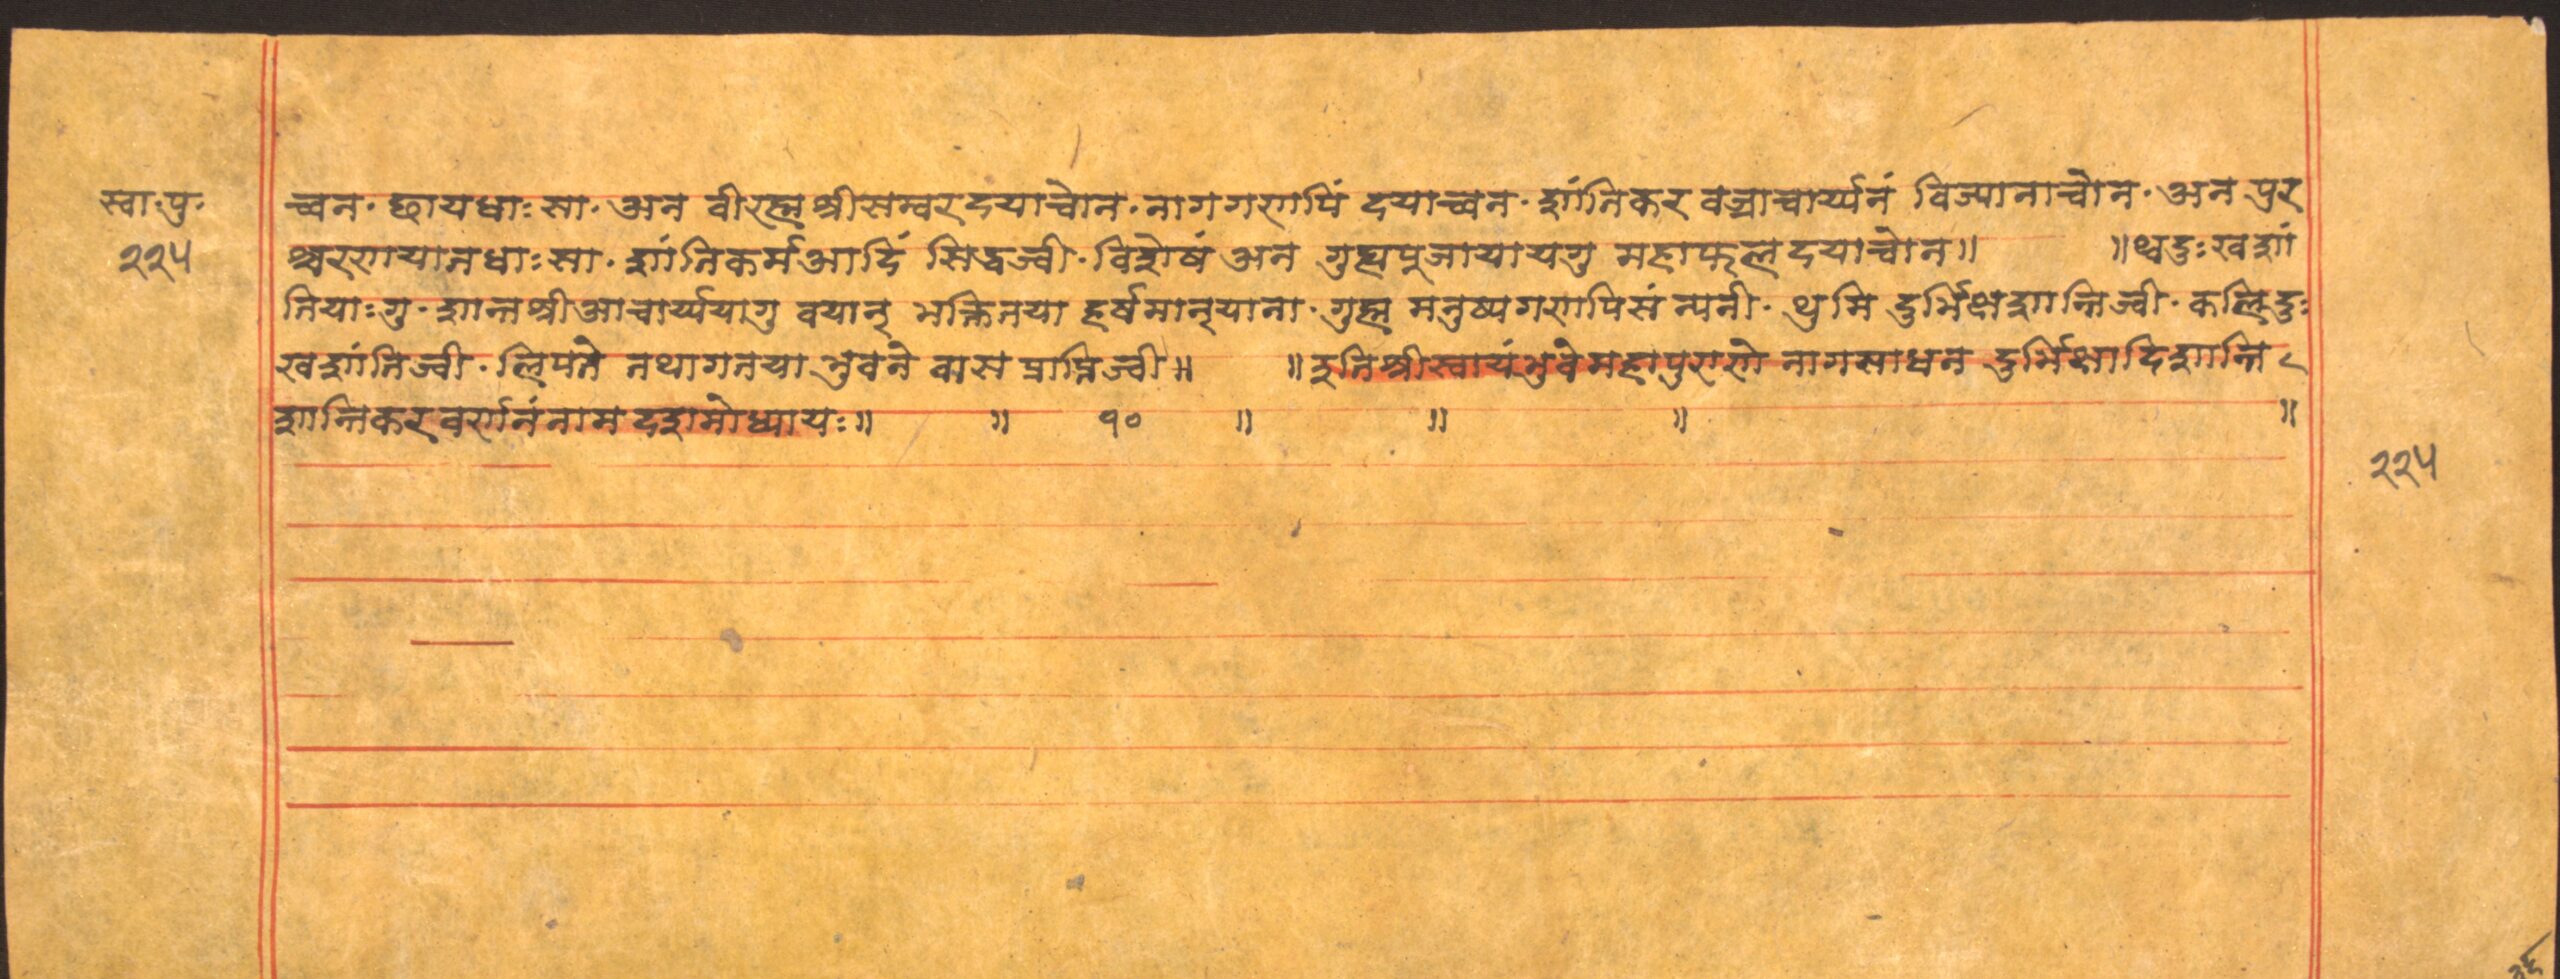 स्वा॰पु॰
२२५
च्वन॰ छायधाः सा॰ अन वीरह्म श्रीसम्बर दयाच्वोन॰ नागगणपिं दयाच्वन॰ शांतिकर वज्राचार्य्यनं विज्यानाच्वोन॰ अन पुर
श्चरणयातधाः सा॰ शांतिकर्मआदिं सिद्धज्वी॰ विशेषं अन गुह्यपूजायायगु महाफल दयाच्वोन॥ ॥थ्वदुःखशां
तियाःगु॰ शान्तश्रीआचार्य्ययागु वयान् भक्तितया हर्षमान्याना॰ गुह्म मनुष्यगणपिसं न्यनी॰ थुमि दुर्भिक्षशान्तिज्वी॰ कलिदुः
खशांतिज्वी॰ लिपते तथागतया भुवने वास प्राप्तिज्वी॥ ॥इतिश्रीस्वायंभुवेमहापुराणे नागसाधन दुर्भिक्षादिशान्ति
शान्तिकरवर्णनंनाम दशमोध्यायः॥ ॥ १० ॥ ॥ ॥ ॥
२२५